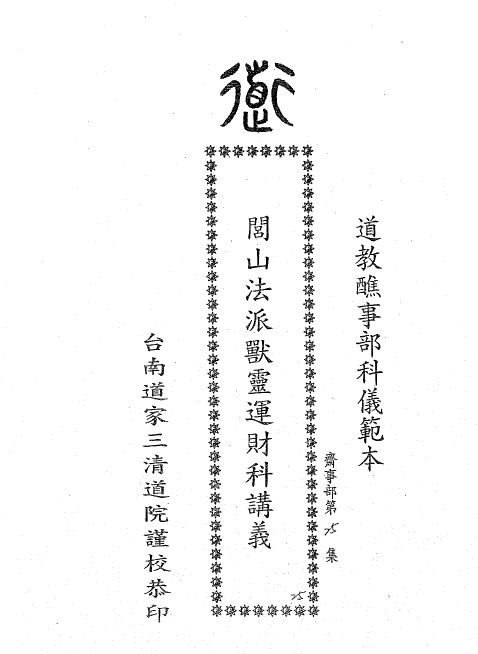 道
道教醮事部科儀範本
齋事部第75集
閭山法派獸靈運財科講義
75
台南道家三清道院謹校恭印